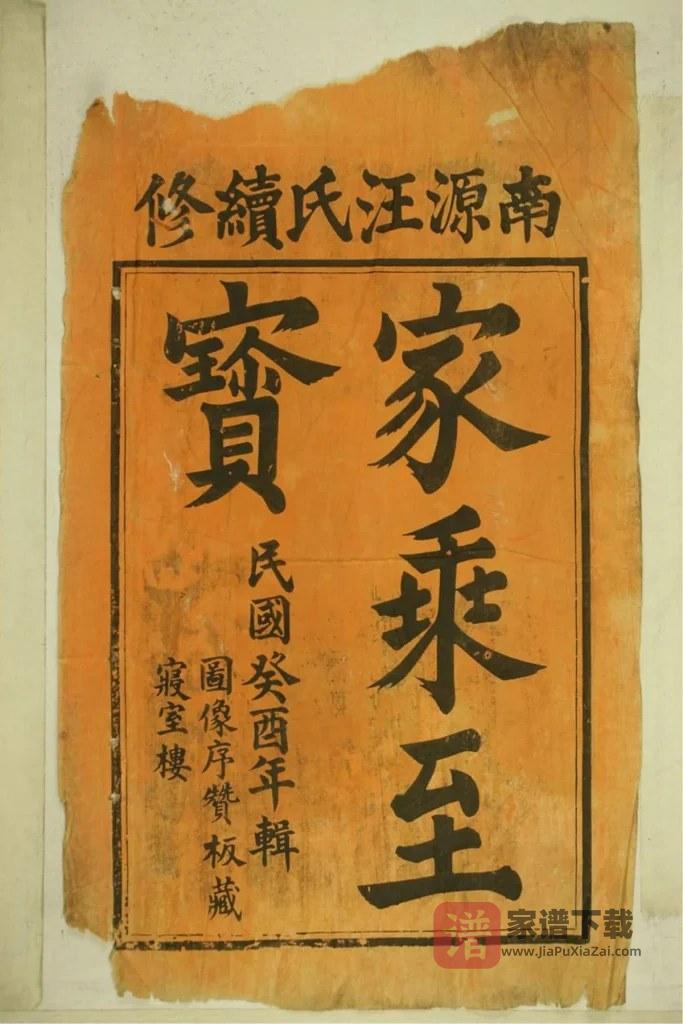 南源汪氏續修
家乘至
寳
民國癸酉年輯
圖像序贊板藏
寢室樓
谱
家谱下载
www.JiaPuXiaZai.com